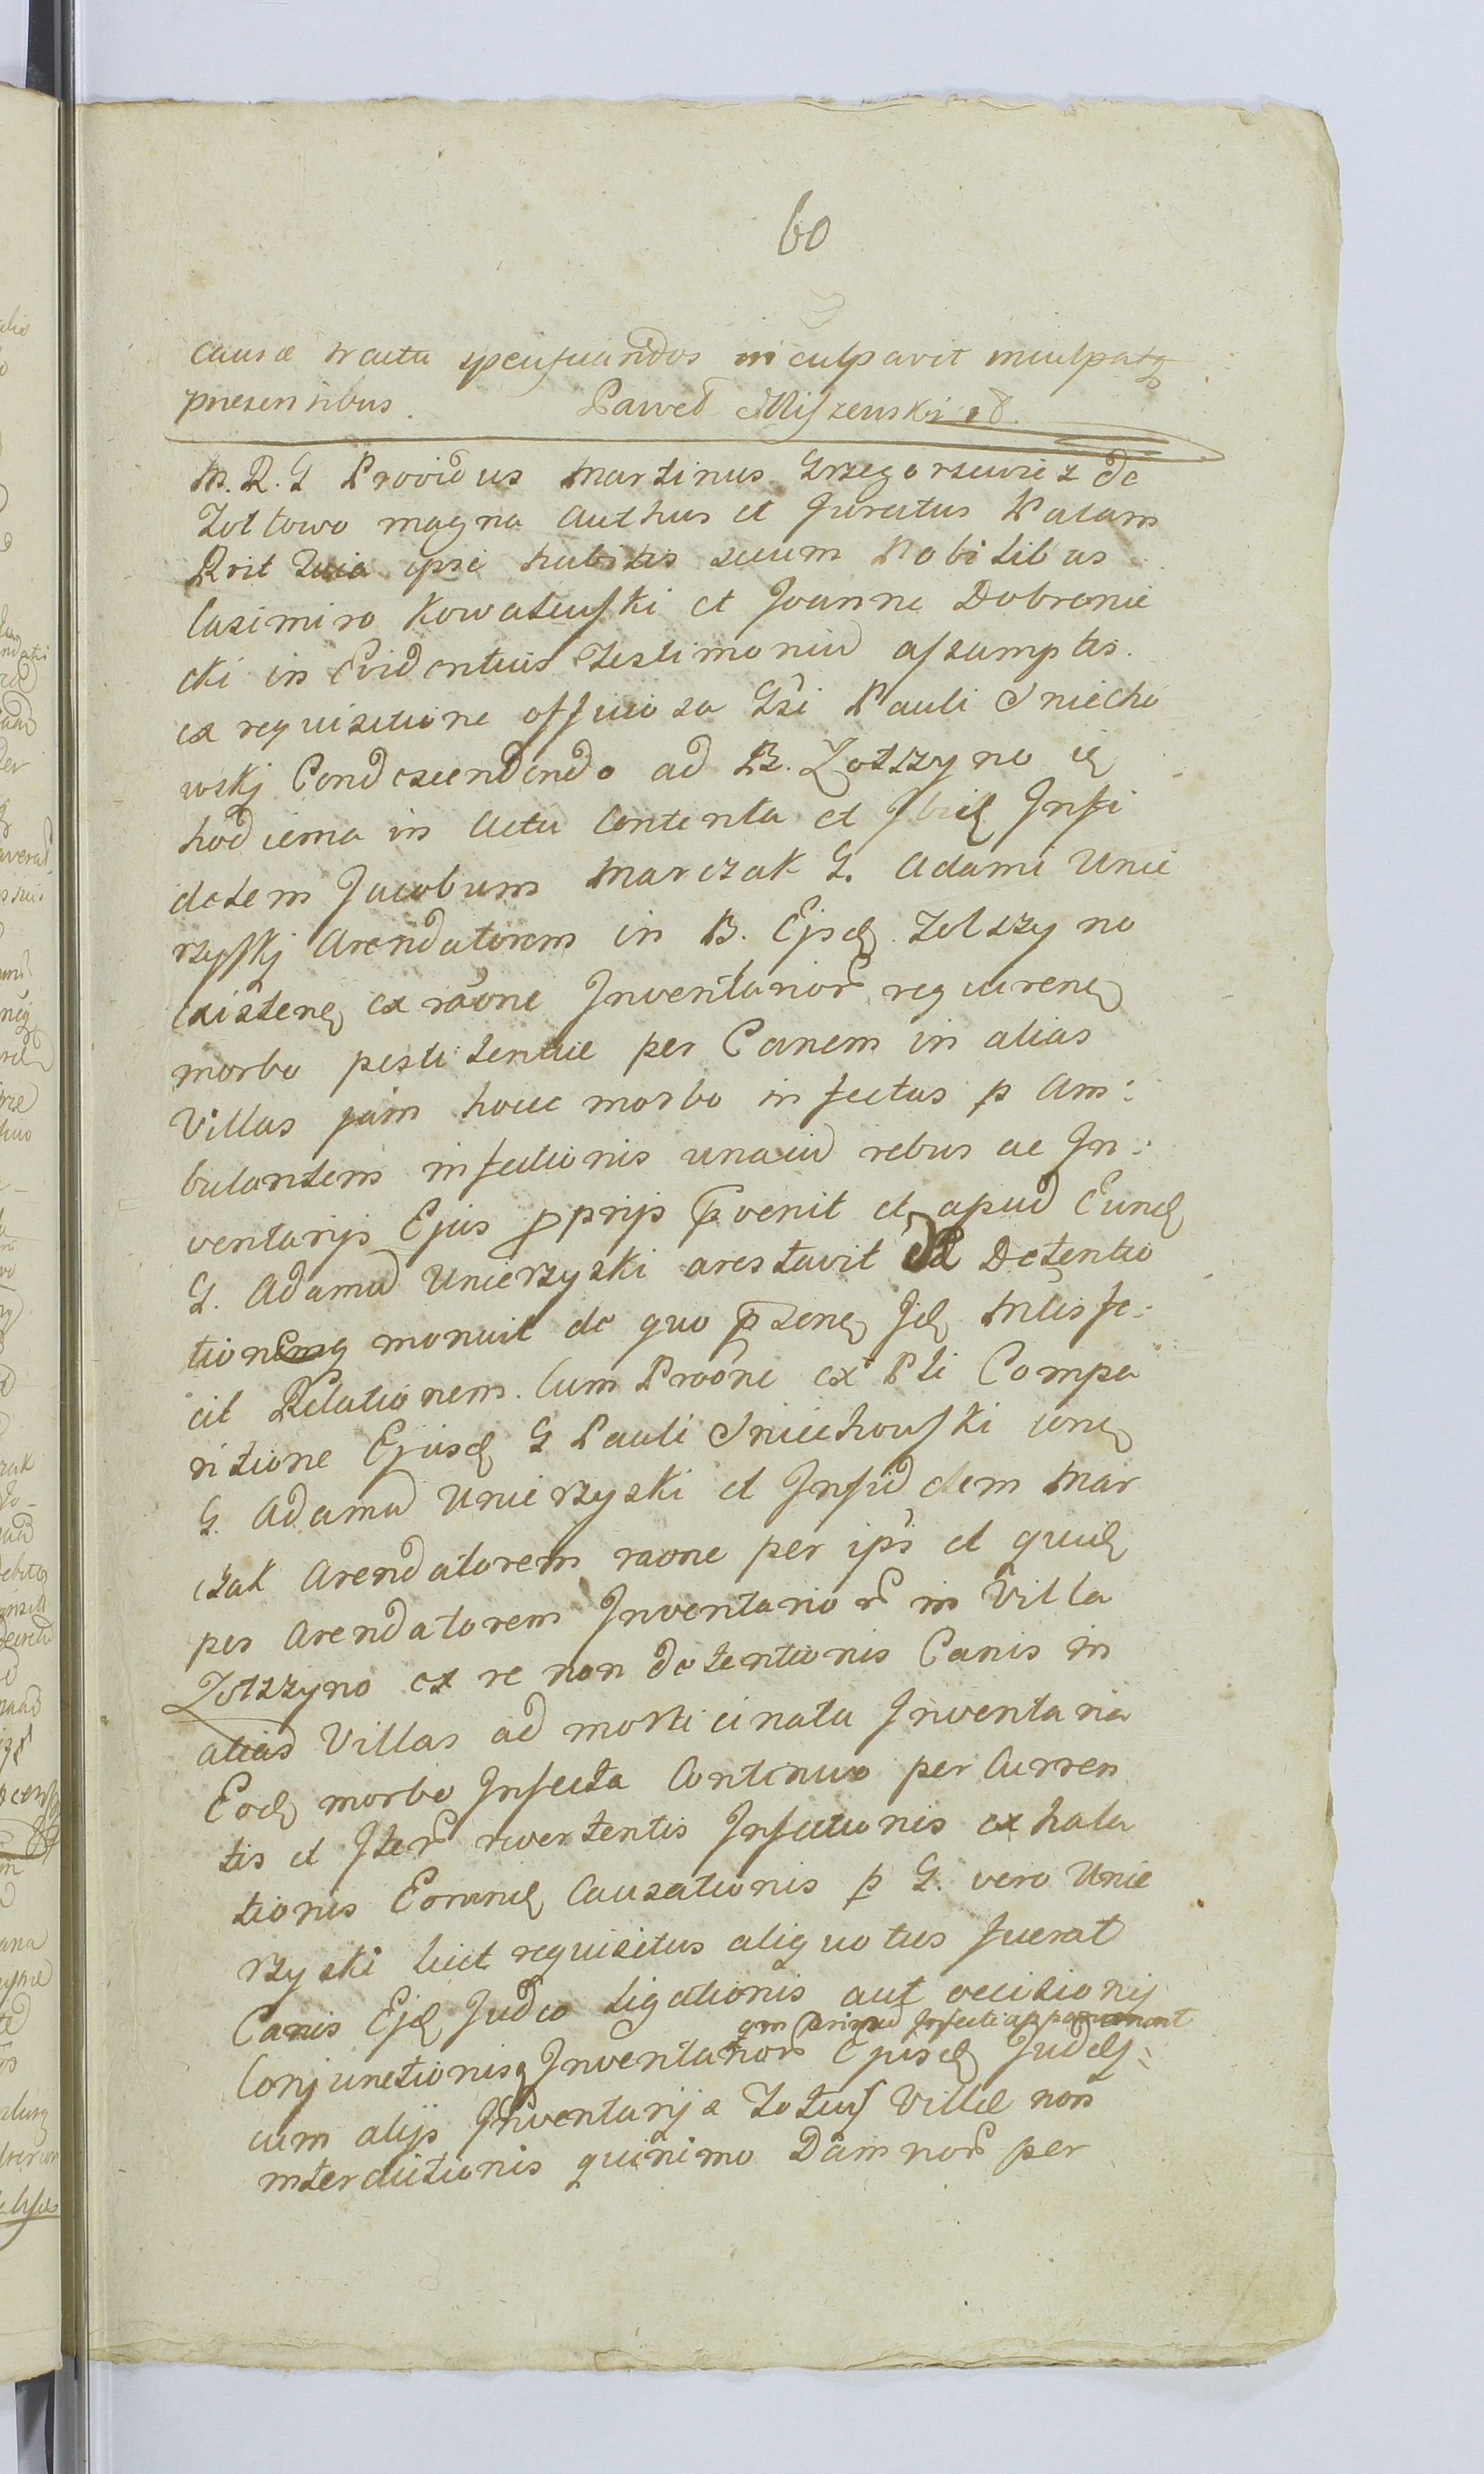 60
causæ tractu specificandos inculpavit inculpatq
præsentibus. Paweł Miszewski
M. R. G Providus Martinus Grzegorzewicz de
Zottowo magna authus et Juratus Palam
Rrit Quia ipse habitis secum Nobilibus
Casimiro Kowalewski et Joanne Dobronie
cki in Evidentius Testimoniu assumptis.
ex requisitione officiosa Gsi Pauli Sniecho
wskj Condescendendo ad B. Zotszyno
hodierna in actu Contenta et Infi
delem Jacobum Marczak G. Adami Unie
rzyskj Arendatorem in B. Ejsd Zolszyno
Existen ex raone Inventarior requiren
morbo pestilentiæ per Canem in alias
Villas jam hocce morbo infectas p Am:
bulantem infectionis unacu rebus ac In:
ventarijs Ejus pprijs pvenit et apud Eund
G. Adamu Unierzyski arestavit Detentio
tionemq monuit de quo pzens fe:
cit Relationem. Cum Praone ex Pti Compa
ritione Ejusd G Pauli Sniechowski con
G. Adamu Unierzyski et Infidelem Mar
czak Arendatorem raone per ips et quid
per Arendatorem Inventarior in Villa
Zotszyno ex re non detentionis Canis in
alias Villas ad morticinata Inventaria
Eod morbo Infecta Continuo per Curren
tis et Iter revertentis Infectionis exhala
tionis Eorund Causationis p G. vero Unie
rzyski licet requisitus aliquoties fuerat
Canis Ejd Judeo ligationis aut occisionis
Conjunctionisq Inventarior Ejusd Judej
cum alijs Inventarijs Totius Villæ non
interdictionis quinimo Damnor per